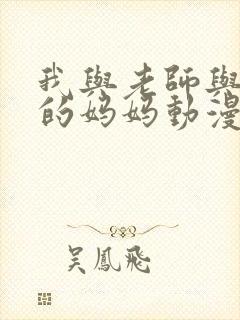 我與老師與
的媽媽動漫
吳鳳飛